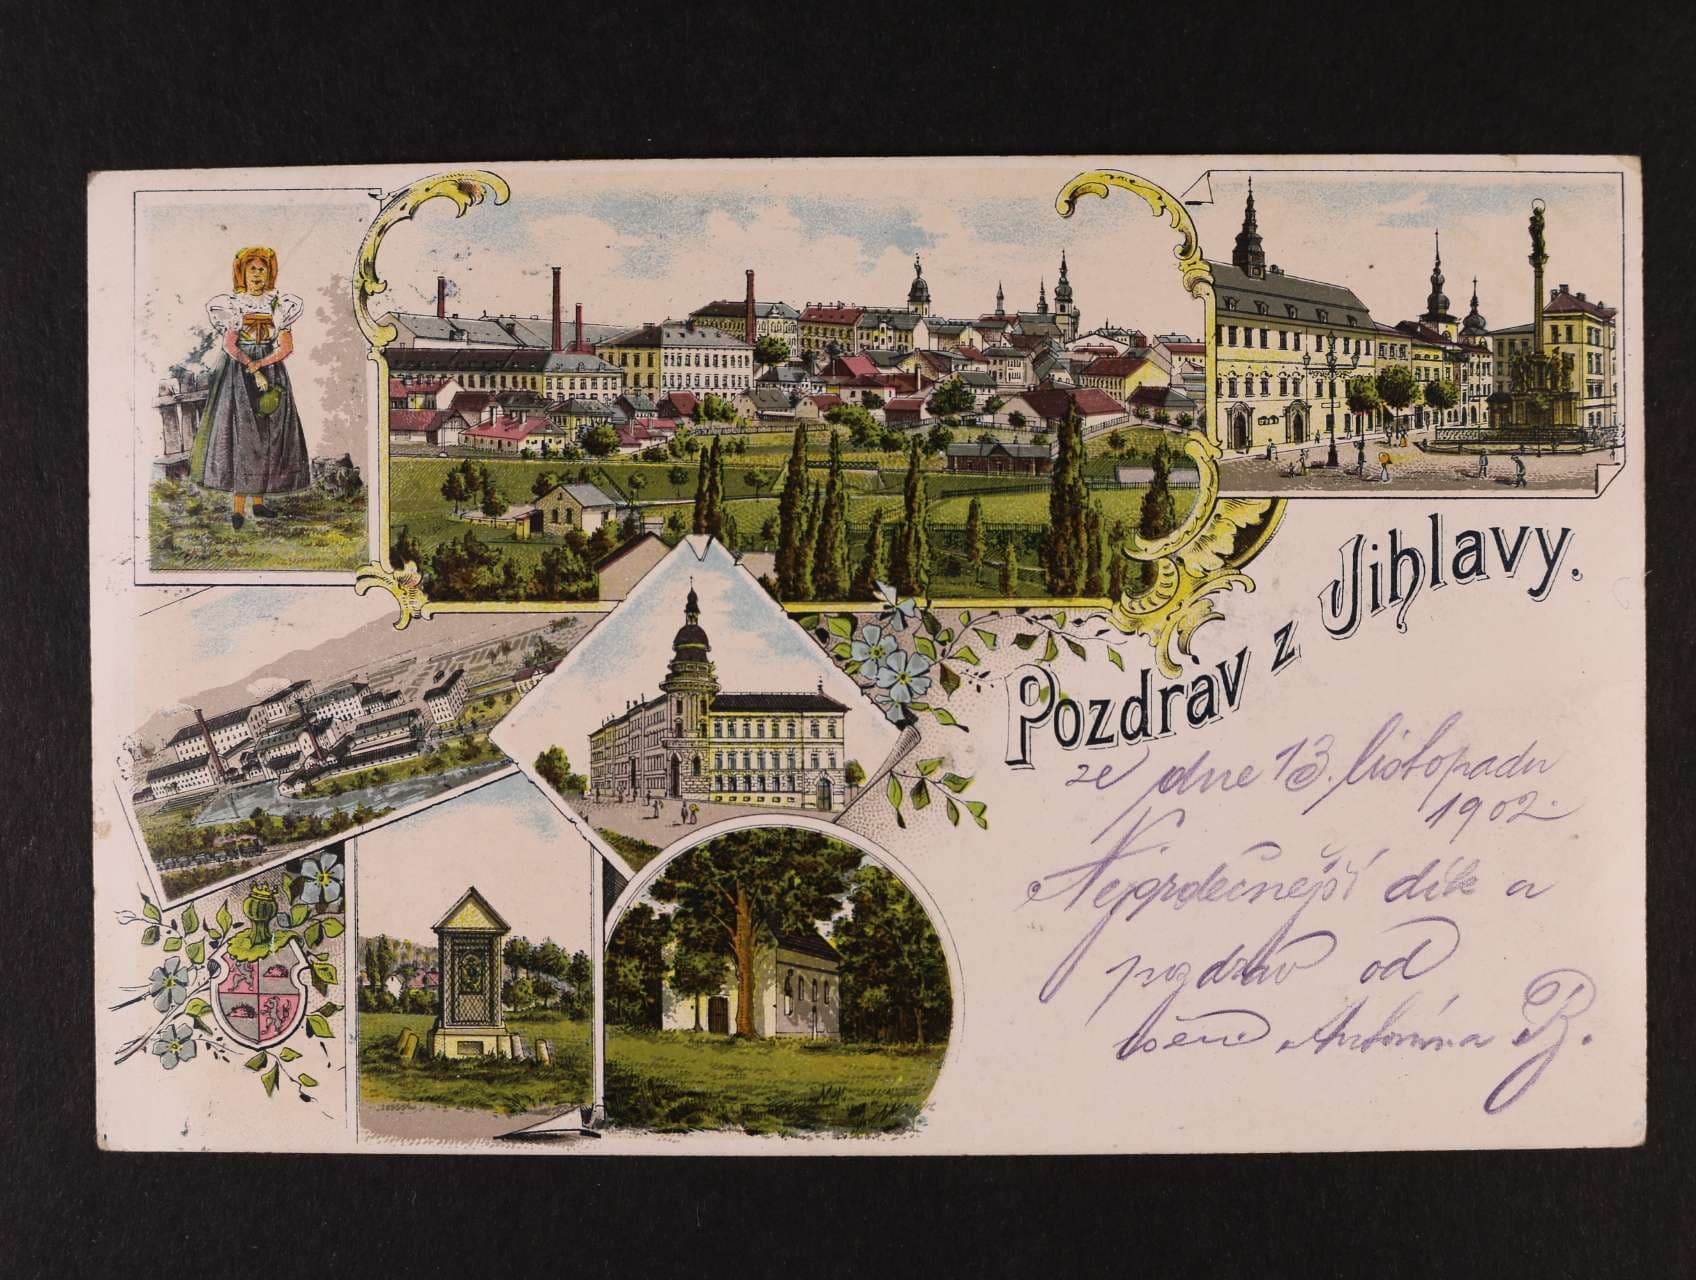 Pozdrav z Jihlavy.
ze dne 13. listopadu
1902.
Nejsrdečnější dík a
pozdrav od
Antonína B.